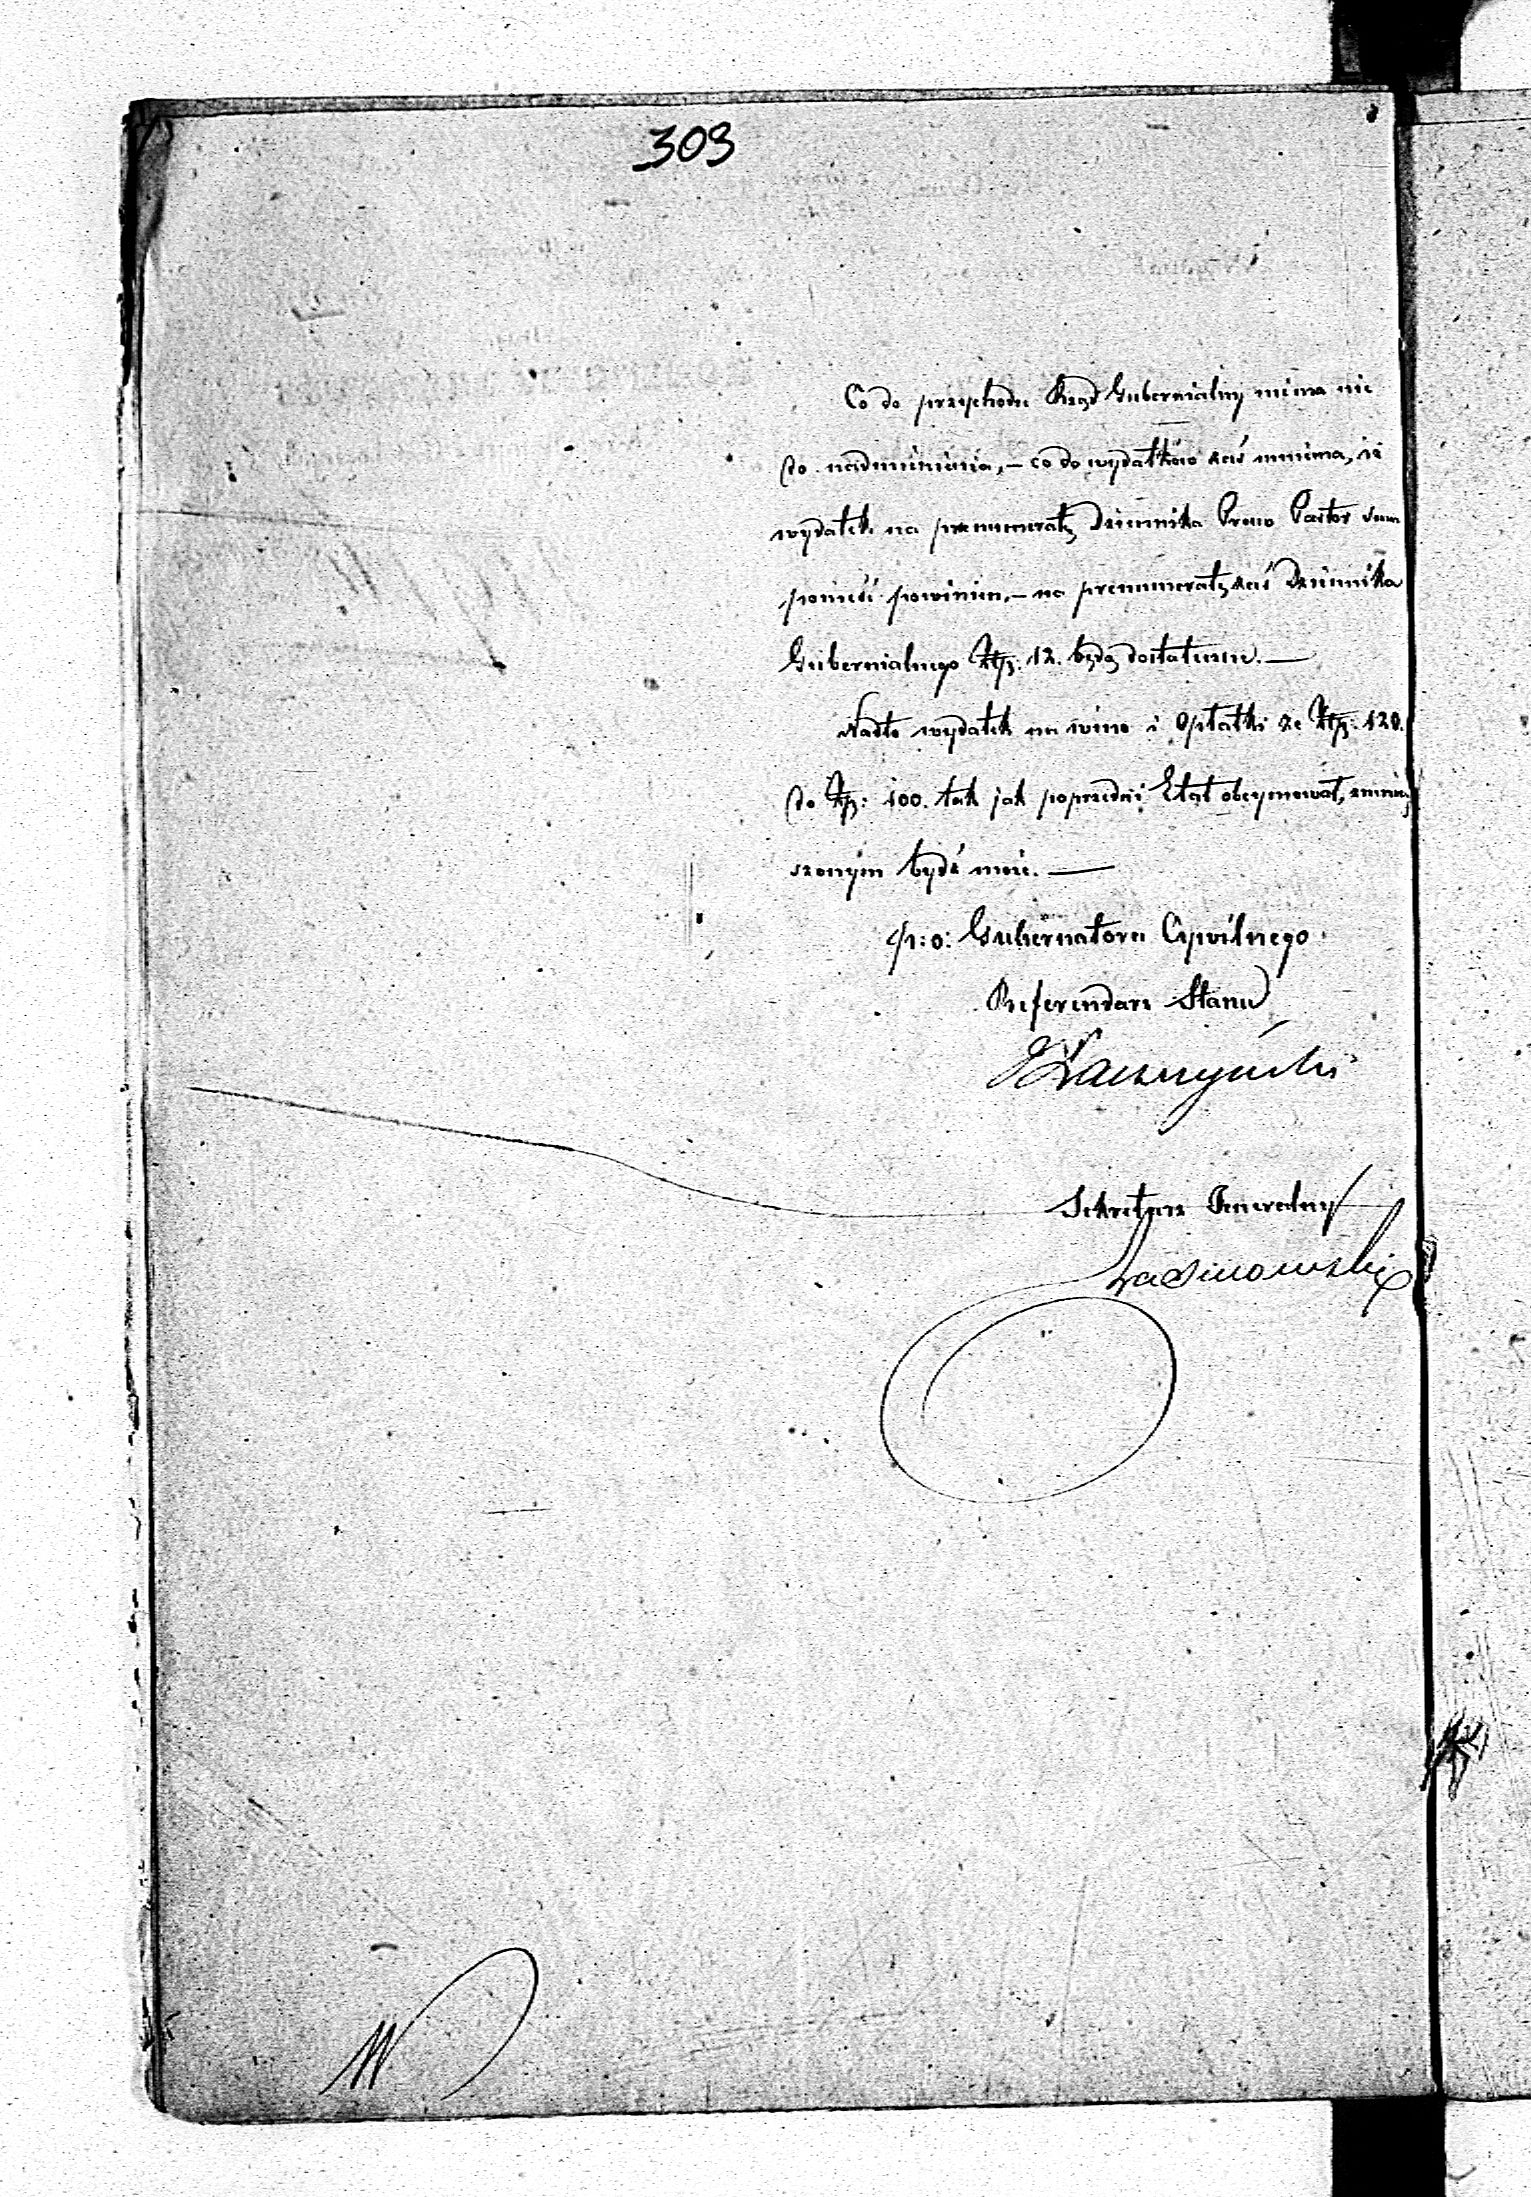 303
Co do przychodu Rząd Gubernialny niéma nic
do nadmienienia, — co do wydatków zaś mniema, że
wydatek na prenumeratę Dziennika Praw Pastor sam
ponieść powinien, — na prenumeratę zaś Dziennika
Gubernialnego Złp: 12. będą dostateczne. —
Nadto wydatek na wino i Opłatki ze Złp: 120.
do Złp: 100. tak jak poprzedni Etat obeymował, zmniej
szonym bydź może. —
p: o: Gubernatora Cywilnego
Referendarz Stanu
Łaszczyński
Sekretarz Generalny